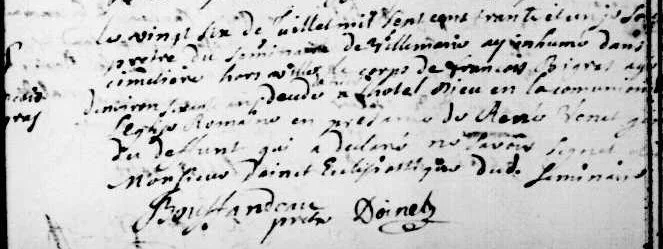 Le vingt six de Juillet mil sept cent trente et un je sous
pretre du Seminaire de Villemarie ay inhumé dans
cimetiere hors ville le corps de francois Bigras agé
denviron ans decedé a lhotel Dieu en la comunion
Leglise Romaine en presance de René Venet
du deffunt qui a declaré ne Savoir signer
Monsieur Doinet Eclesiastique dud. Seminaire
gras
Bouffandeau pretre Doinet